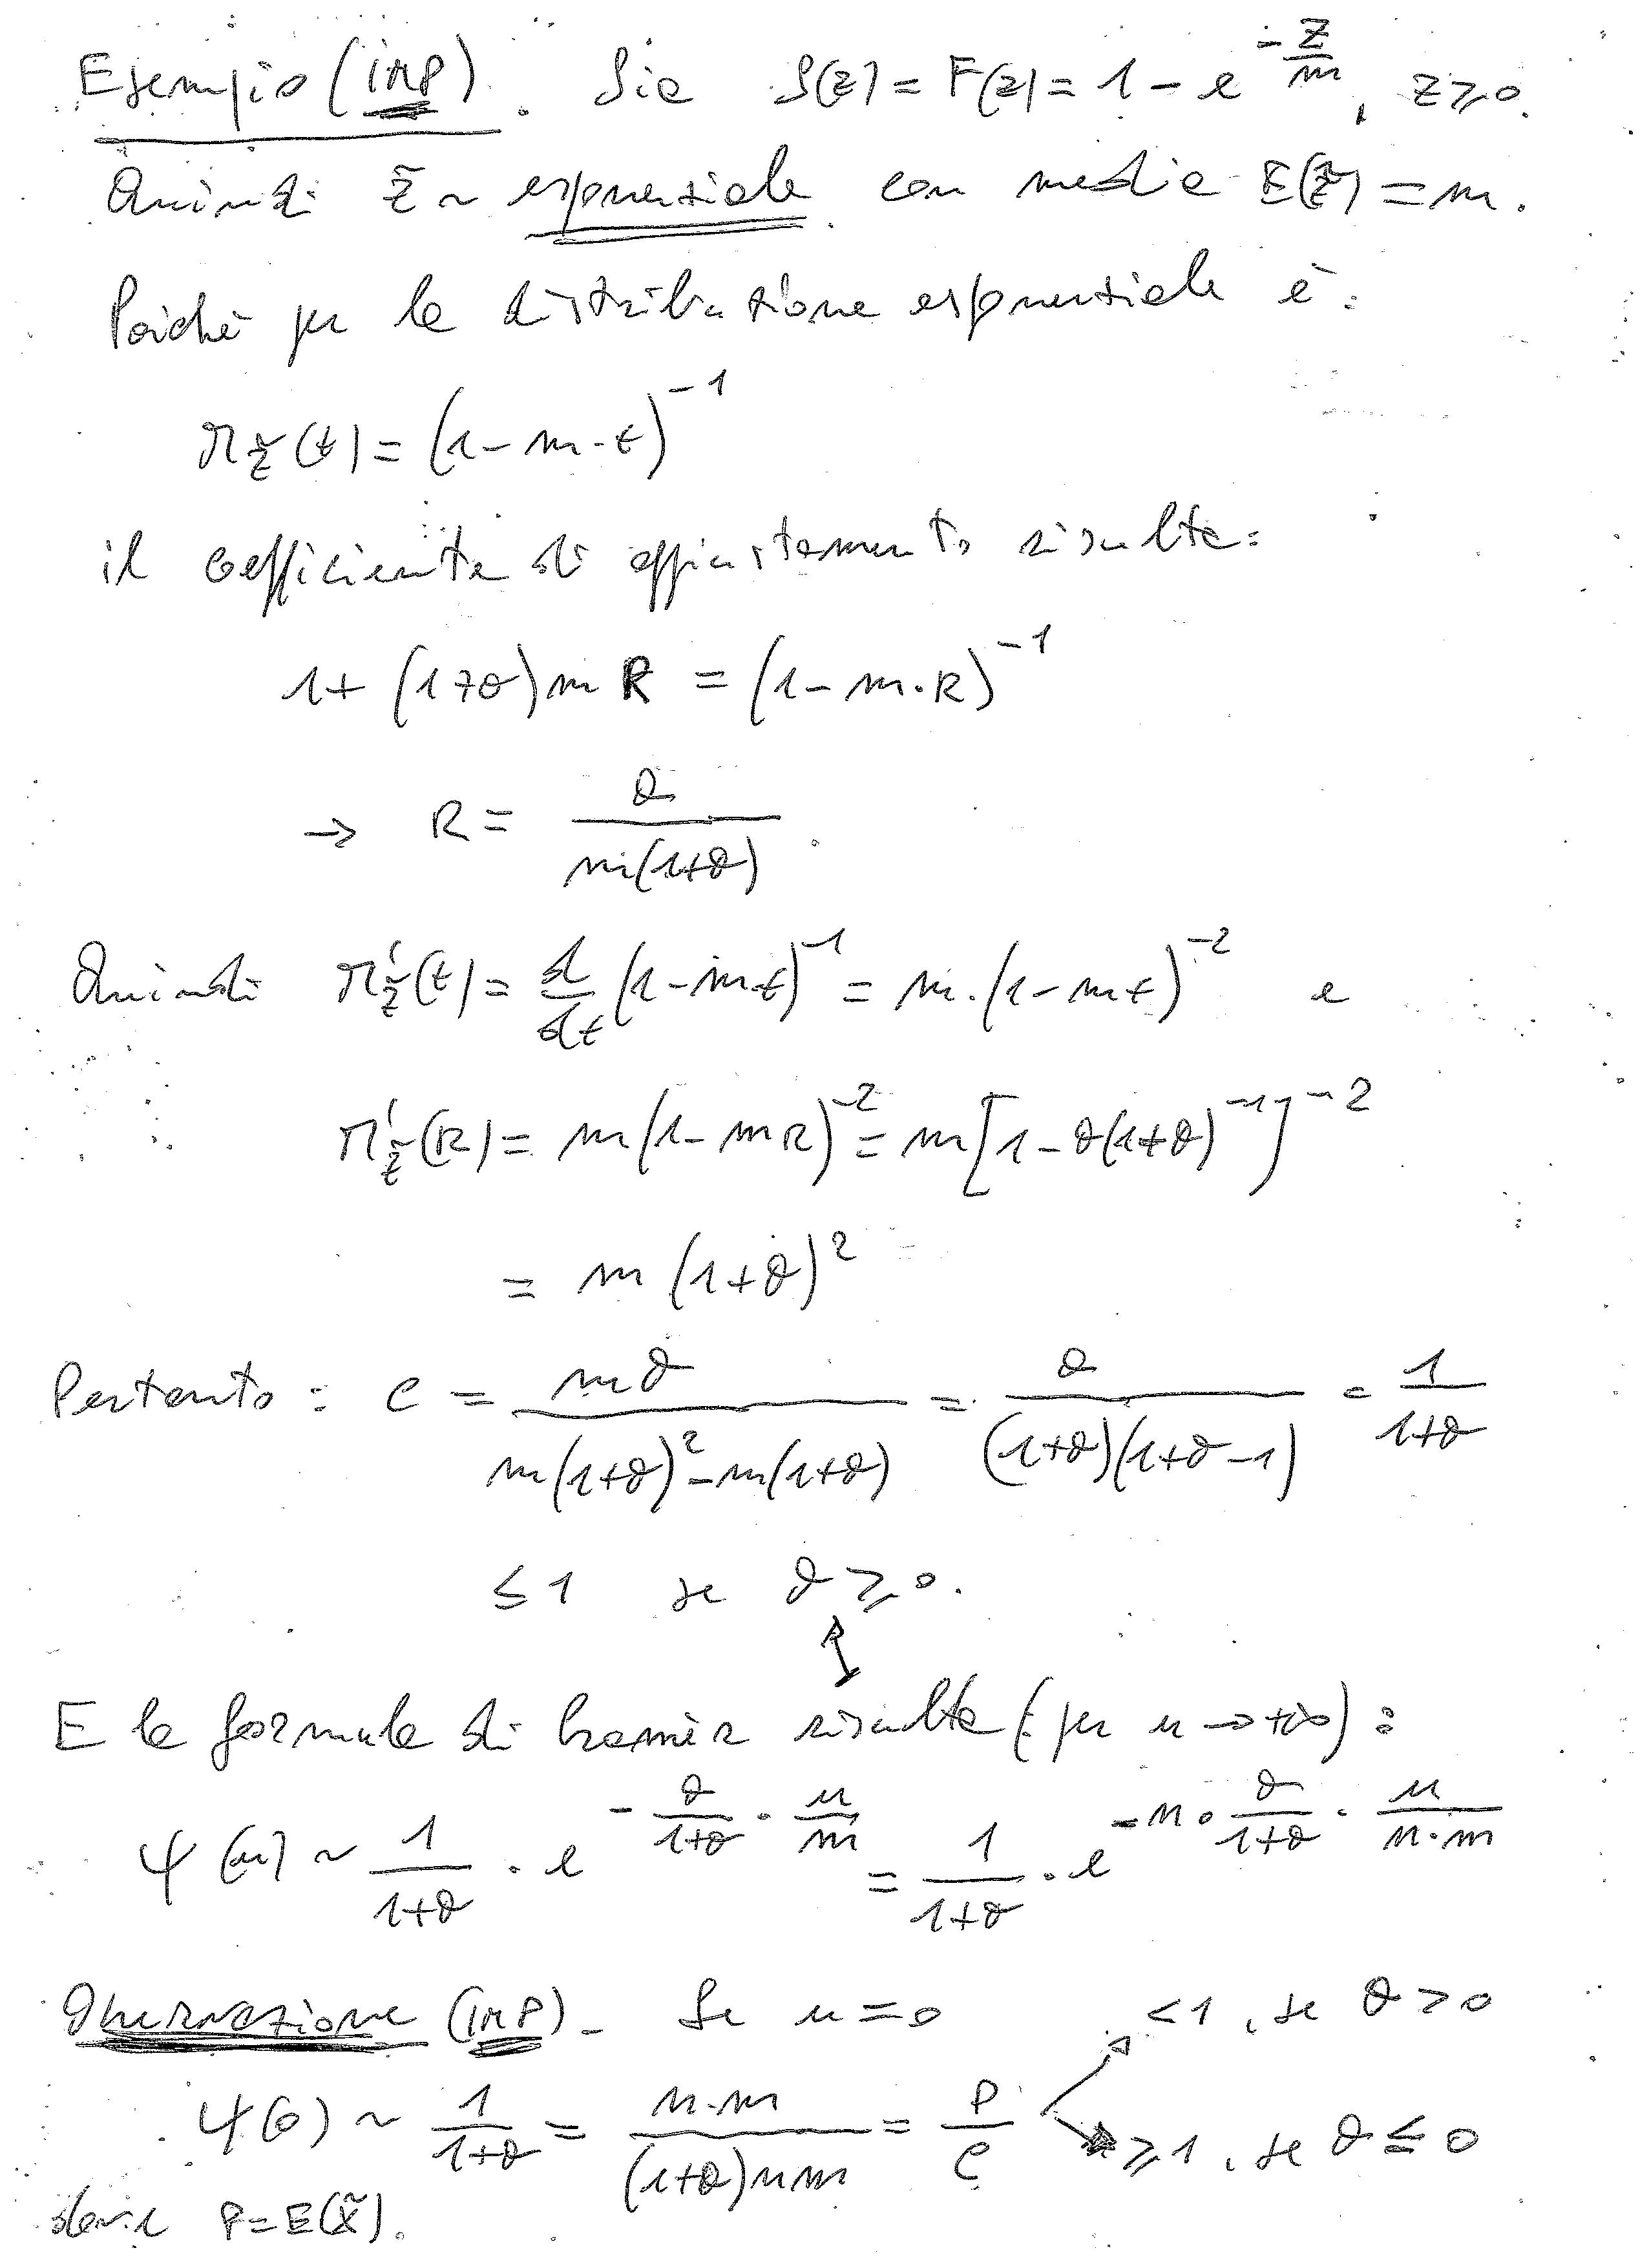 Esempio (IMP). Sia S(z) = F(z) = 1 - e^{-z/m}, z ≥ 0.
Quindi z̃ ~ esponenziale con media E(z̃) = m.
Poiché per la distribuzione esponenziale è:
M_z̃(t) = (1 - m·t)^{-1}
il coefficiente di aggiustamento risulta:
1 + (1+θ) m R = (1 - m·R)^{-1}
→ R = θ / m(1+θ).
Quindi M'_z̃(t) = d/dt (1 - mt)^{-1} = m·(1 - mt)^{-2} e
M'_z̃(R) = m(1 - mR)^{-2} = m[1 - θ(1+θ)^{-1}]^{-2}
= m (1+θ)^2
Pertanto: c = mθ / m(1+θ)^2 - m(1+θ) = θ / (1+θ)(1+θ-1) = 1 / 1+θ
≤ 1 se θ ≥ 0.
E la formula di Cramèr risulta (per u → +∞):
ψ(u) ~ 1/1+θ · e^{-θ/1+θ · u/m} = 1/1+θ · e^{-n · θ/1+θ · u/n·m}
Osservazione (IMP). Se u = 0 < 1, se θ > 0
ψ(0) ~ 1/1+θ = n·m / (1+θ)nm = P/c ≥ 1, se θ ≤ 0
dove P = E(X̃).